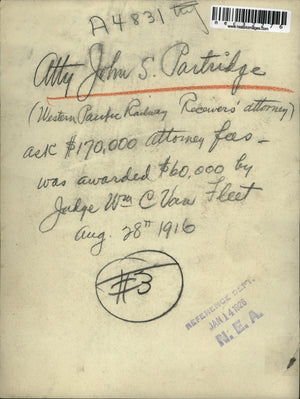 A4831
Atty John S. Partridge
(Western Pacific Railway Receivers' attorney)
ask $170,000 attorney fees –
was awarded $60,000 by
Judge Wm C Van Fleet
Aug. 28th 1916
#3
REFERENCE DEPT.
JAN 14 1926
N. E. A.